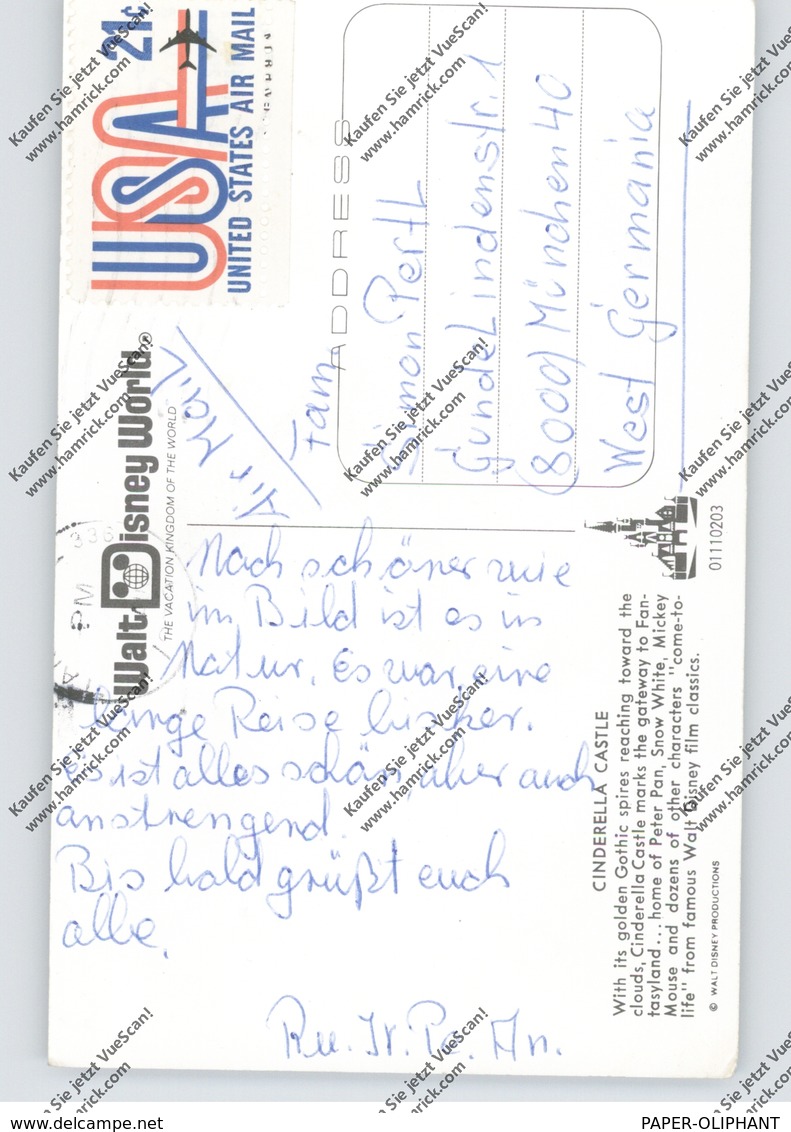 USA 21¢
UNITED STATES AIR MAIL
Walt Disney World®
THE VACATION KINGDOM OF THE WORLD
Air Mail
PM
ADDRESS
Fam.
Simon Pertl
Gundelindenstr. 1
(8000) München 40
West Germania
Noch schöner wie
im Bild ist es in
Natur. Es war eine
lange Reise bisher.
Es ist alles schön, aber auch
anstrengend.
Bis bald grüßt euch
alle,
Ru. Ir. Pe. An.
CINDERELLA CASTLE
With its golden Gothic spires reaching toward the
clouds, Cinderella Castle marks the gateway to Fan-
tasyland... home of Peter Pan, Snow White, Mickey
Mouse and dozens of other characters "come-to-
life" from famous Walt Disney film classics.
© WALT DISNEY PRODUCTIONS
01110203
Kaufen Sie jetzt VueScan!
www.hamrick.com
www.delcampe.net
PAPER-OLIPHANT